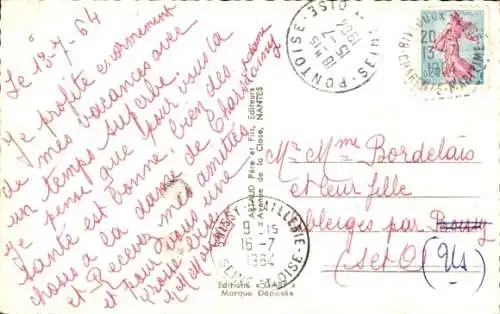 Le 13-7-64
Je profite énormément
de mes vacances avec
un temps superbe.
Je pense que pour vous la
santé est bonne. bien des
choses à la dame de Charly
et Recevez mes amitiés
et pour vous une
grosse bise
M. et Mme Bordelais
et leur fille
ablerges par
(S et O) (Us)
SEINE-ET-OISE
PONTOISE
18 H -15
15-7
1964
20 H
13-7
CHARENTE-MARITIME
BOISSY-L'AILLERIE
9 H 15
16-7
1964
SEINE-ET-OISE
ARTAUD Père et Fils, Editeurs
Avenue de la Close, NANTES
Editions «GABY»
Marque Déposée